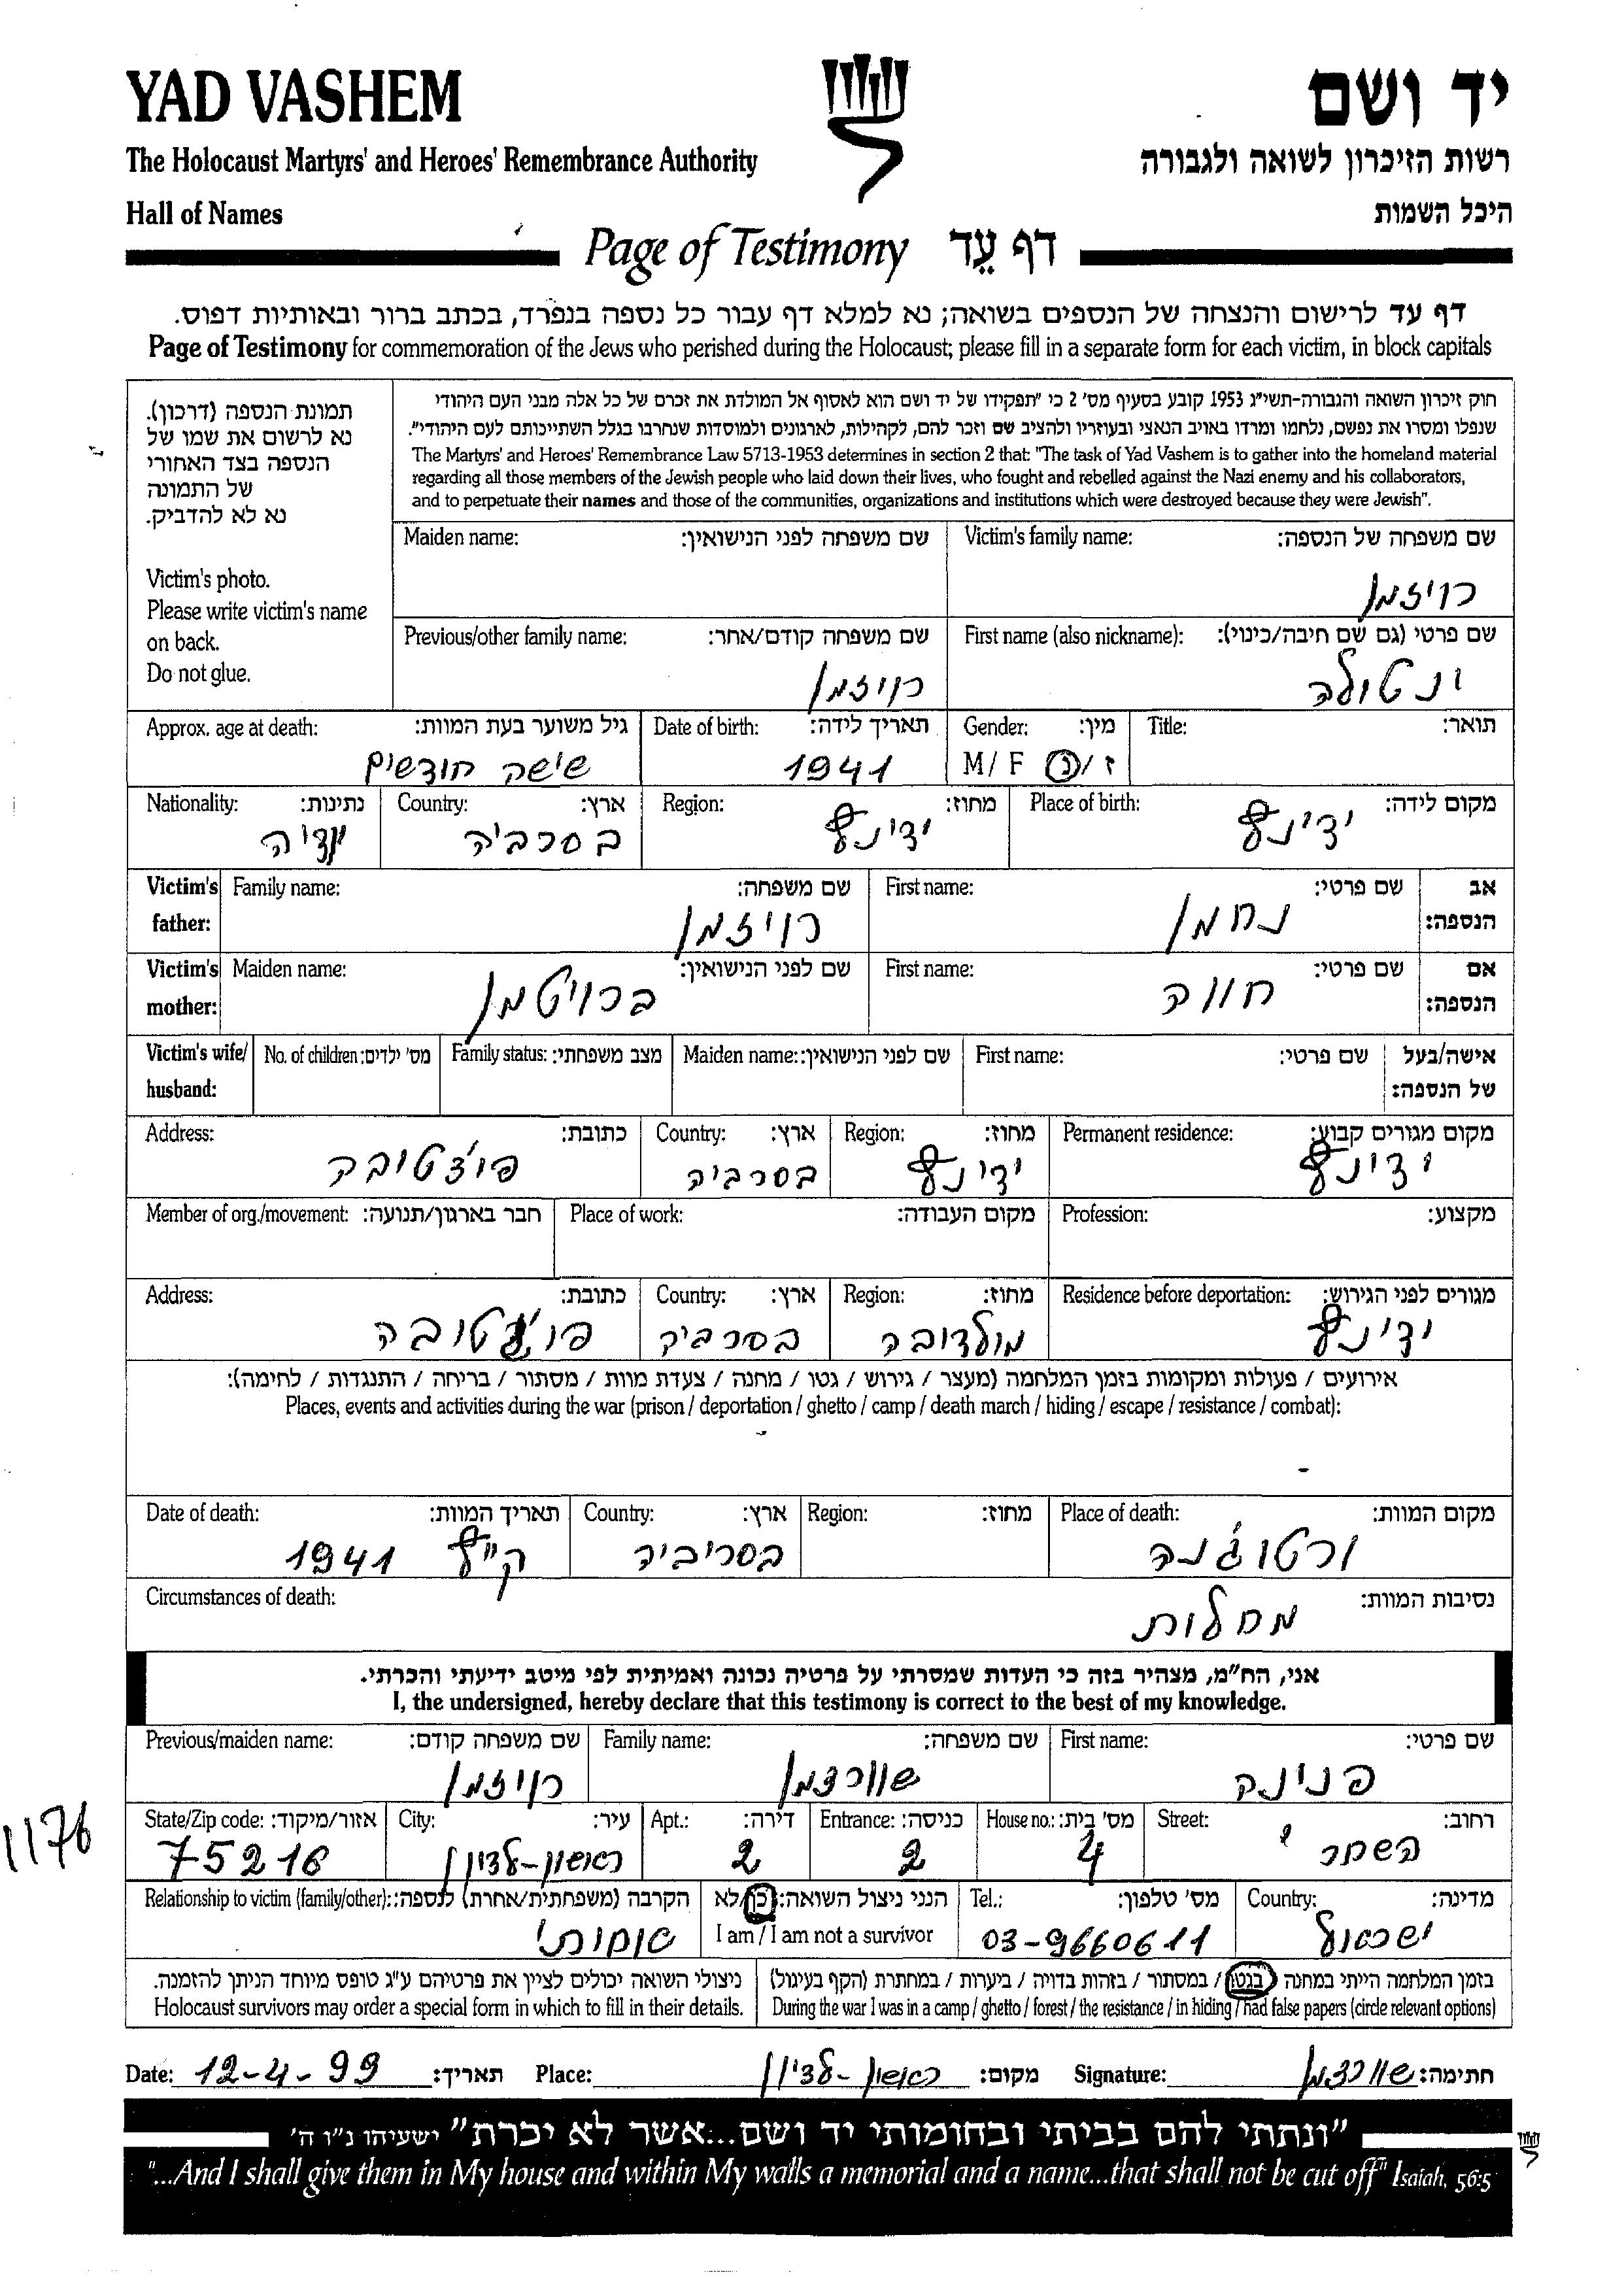 YAD VASHEM
יד ושם
The Holocaust Martyrs' and Heroes' Remembrance Authority
רשות הזיכרון לשואה ולגבורה
Hall of Names
היכל השמות
Page of Testimony דף עֵד
דף עד לרישום והנצחה של הנספים בשואה; נא למלא דף עבור כל נספה בנפרד, בכתב ברור ובאותיות דפוס.
Page of Testimony for commemoration of the Jews who perished during the Holocaust; please fill in a separate form for each victim, in block capitals
תמונת הנספה (דרכון).
נא לרשום את שמו של
הנספה בצד האחורי
של התמונה
נא לא להדביק.
Victim's photo.
Please write victim's name
on back.
Do not glue.
חוק זיכרון השואה והגבורה-תשי"ג 1953 קובע בסעיף מס' 2 כי "תפקידו של יד ושם הוא לאסוף אל המולדת את זכרם של כל אלה מבני העם היהודי
שנפלו ומסרו את נפשם, נלחמו ומרדו באויב הנאצי ובעוזריו ולהציב שם וזכר להם, לקהילות, לארגונים ולמוסדות שנחרבו בגלל השתייכותם לעם היהודי".
The Martyrs' and Heroes' Remembrance Law 5713-1953 determines in section 2 that: "The task of Yad Vashem is to gather into the homeland material
regarding all those members of the Jewish people who laid down their lives, who fought and rebelled against the Nazi enemy and his collaborators,
and to perpetuate their names and those of the communities, organizations and institutions which were destroyed because they were Jewish".
Victim's family name: שם משפחה של הנספה:
רויזמן
Maiden name: שם משפחה לפני הנישואין:
First name (also nickname): שם פרטי (גם שם חיבה/כינוי):
ינטולה
Previous/other family name: שם משפחה קודם/אחר:
רויזמן
Title: תואר:
Gender: מין:
M/ F ז/נ
Date of birth: תאריך לידה:
1941
Approx. age at death: גיל משוער בעת המוות:
שישה חודשים
Place of birth: מקום לידה:
ידינץ
Region: מחוז:
ידינץ
Country: ארץ:
בסרביה
Nationality: נתינות:
Victim's father: אב הנספה:
First name: שם פרטי:
נחמן
Family name: שם משפחה:
רויזמן
Victim's mother: אם הנספה:
First name: שם פרטי:
חווה
Maiden name: שם לפני הנישואין:
ברויטמן
Victim's wife/ husband: אישה/בעל של הנספה:
First name: שם פרטי:
Maiden name: שם לפני הנישואין:
Family status: מצב משפחתי:
No. of children: מס' ילדים:
Permanent residence: מקום מגורים קבוע:
ידינץ
Region: מחוז:
ידינץ
Country: ארץ:
בסרביה
Address: כתובת:
פוצ'טובה
Profession: מקצוע:
Place of work: מקום העבודה:
Member of org./movement: חבר בארגון/תנועה:
Residence before deportation: מגורים לפני הגירוש:
ידינץ
Region: מחוז:
מולדובה
Country: ארץ:
בסרביה
Address: כתובת:
פוצ'טובה
אירועים / פעולות ומקומות בזמן המלחמה (מעצר / גירוש / גטו / מחנה / צעדת מוות / מסתור / בריחה / התנגדות / לחימה):
Places, events and activities during the war (prison / deportation / ghetto / camp / death march / hiding / escape / resistance / combat):
Place of death: מקום המוות:
ורטוג'נה
Region: מחוז:
Country: ארץ:
בסריביה
Date of death: תאריך המוות:
קיץ 1941
Circumstances of death: נסיבות המוות:
מחלות
אני, הח"מ, מצהיר בזה כי העדות שמסרתי על פרטיה נכונה ואמיתית לפי מיטב ידיעתי והכרתי.
I, the undersigned, hereby declare that this testimony is correct to the best of my knowledge.
First name: שם פרטי:
פנינה
Family name: שם משפחה:
שוורצמן
Previous/maiden name: שם משפחה קודם:
רויזמן
1176
Street: רחוב:
השחר
House no.: מס' בית:
4
Entrance: כניסה:
2
Apt.: דירה:
2
City: עיר:
ראשון-לציון
State/Zip code: אזור/מיקוד:
75216
Country: מדינה:
ישראל
Tel.: מס' טלפון:
03-9660611
הנני ניצול השואה: כן/לא
I am / I am not a survivor
Relationship to victim (family/other): הקרבה (משפחתית/אחרת) לנספה:
אחותי
בזמן המלחמה הייתי במחנה / בגטו / במסתור / בזהות בדויה / ביערות / במחתרת (הקף בעיגול)
During the war I was in a camp / ghetto / forest / the resistance / in hiding / had false papers (circle relevant options)
ניצולי השואה יכולים לציין את פרטיהם ע"ג טופס מיוחד הניתן להזמנה.
Holocaust survivors may order a special form in which to fill in their details.
Date: 12-4-99 תאריך: Place: ראשון-לציון מקום: Signature: שוורצמן חתימה:
"ונתתי להם בביתי ובחומותי יד ושם...אשר לא יכרת" ישעיהו נ"ו ה'
"...And I shall give them in My house and within My walls a memorial and a name...that shall not be cut off" Isaiah, 56:5